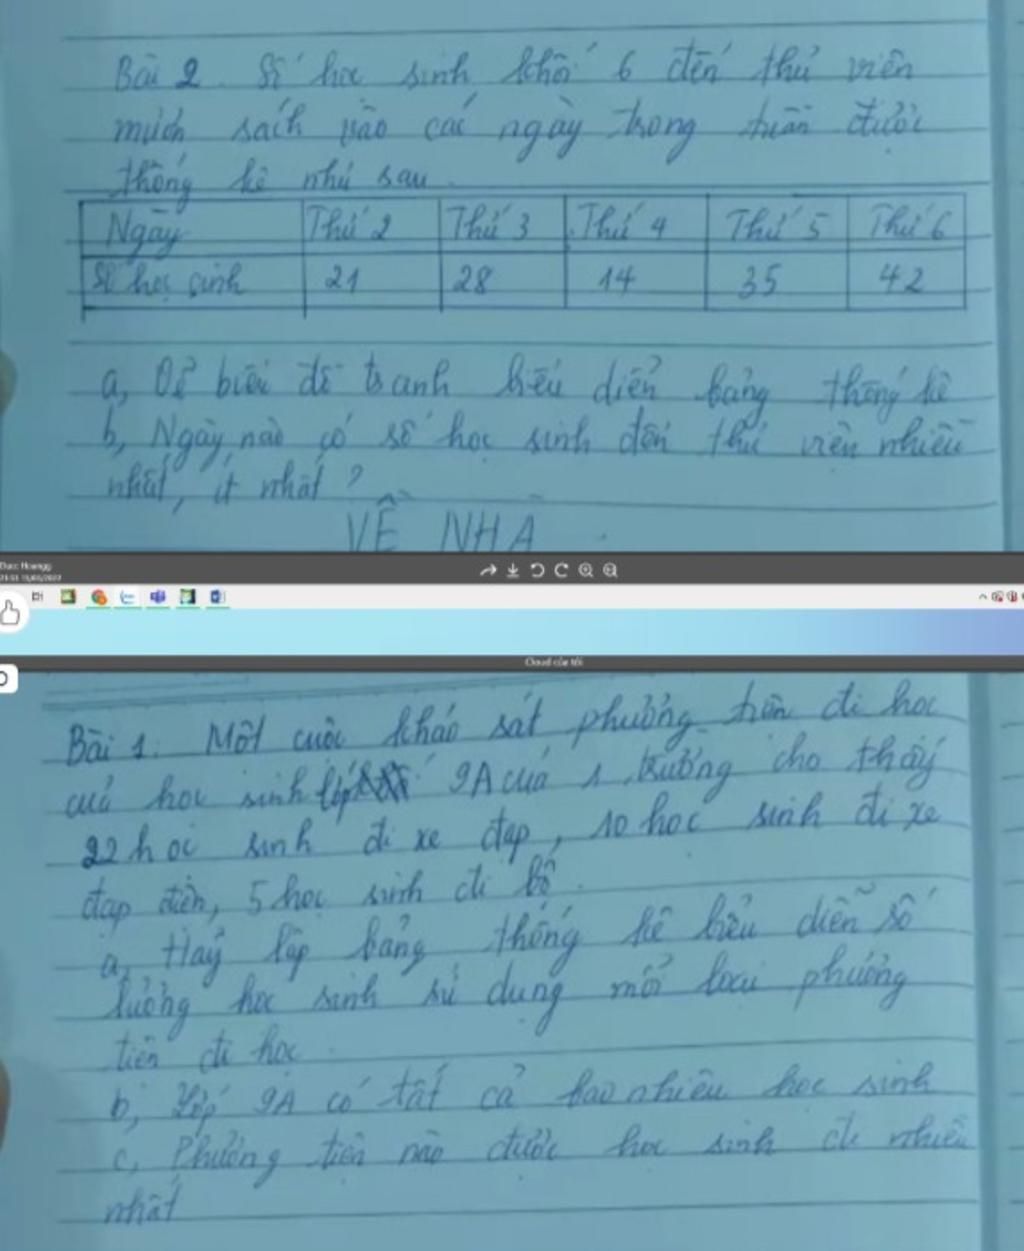 Bài 2. Số học sinh khối 6 đến thư viện
mượn sách vào các ngày trong tuần được
thống kê như sau.
Ngày Thứ 2 Thứ 3 Thứ 4 Thứ 5 Thứ 6
Số học sinh 21 28 14 35 42
a, Vẽ biểu đồ tranh biểu diễn bảng thống kê
b, Ngày nào có số học sinh đến thư viện nhiều
nhất, ít nhất ?
VỀ NHÀ.
Cloud của tôi
Bài 1. Một cuộc khảo sát phương tiện đi học
của học sinh lớp 9A của 1 trường cho thấy
22 học sinh đi xe đạp, 10 học sinh đi xe
đạp điện, 5 học sinh đi bộ.
a, Hãy lập bảng thống kê biểu diễn số
lượng học sinh sử dụng mỗi loại phương
tiện đi học.
b, Lớp 9A có tất cả bao nhiêu học sinh
c, Phương tiện nào được học sinh đi nhiều
nhất